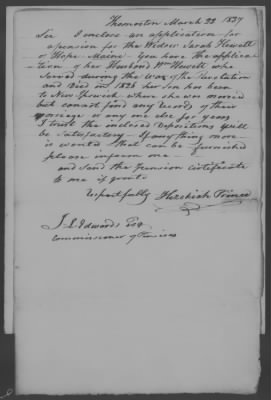 Thomaston March 22 1837
Sir I enclose an application for
a pension for the Widow Sarah Hewett
of Hope - Maine You have the applica
tion of her Husband Wm Hewett who
served during the War of the Revolution
and Died in 1826 her Son has been
to New Ipswich where she was married
but cannot find any Records of their
marriage or any one else for years
I trust the inclosed depositions will
be Satisfactory - If any thing more
is wanted that can be furnished
please inform me -
and send the Pension Certificate
to me if grant
Respectfully Hezekiah Prince
J L Edwards Esq
Commissioner of Pensions